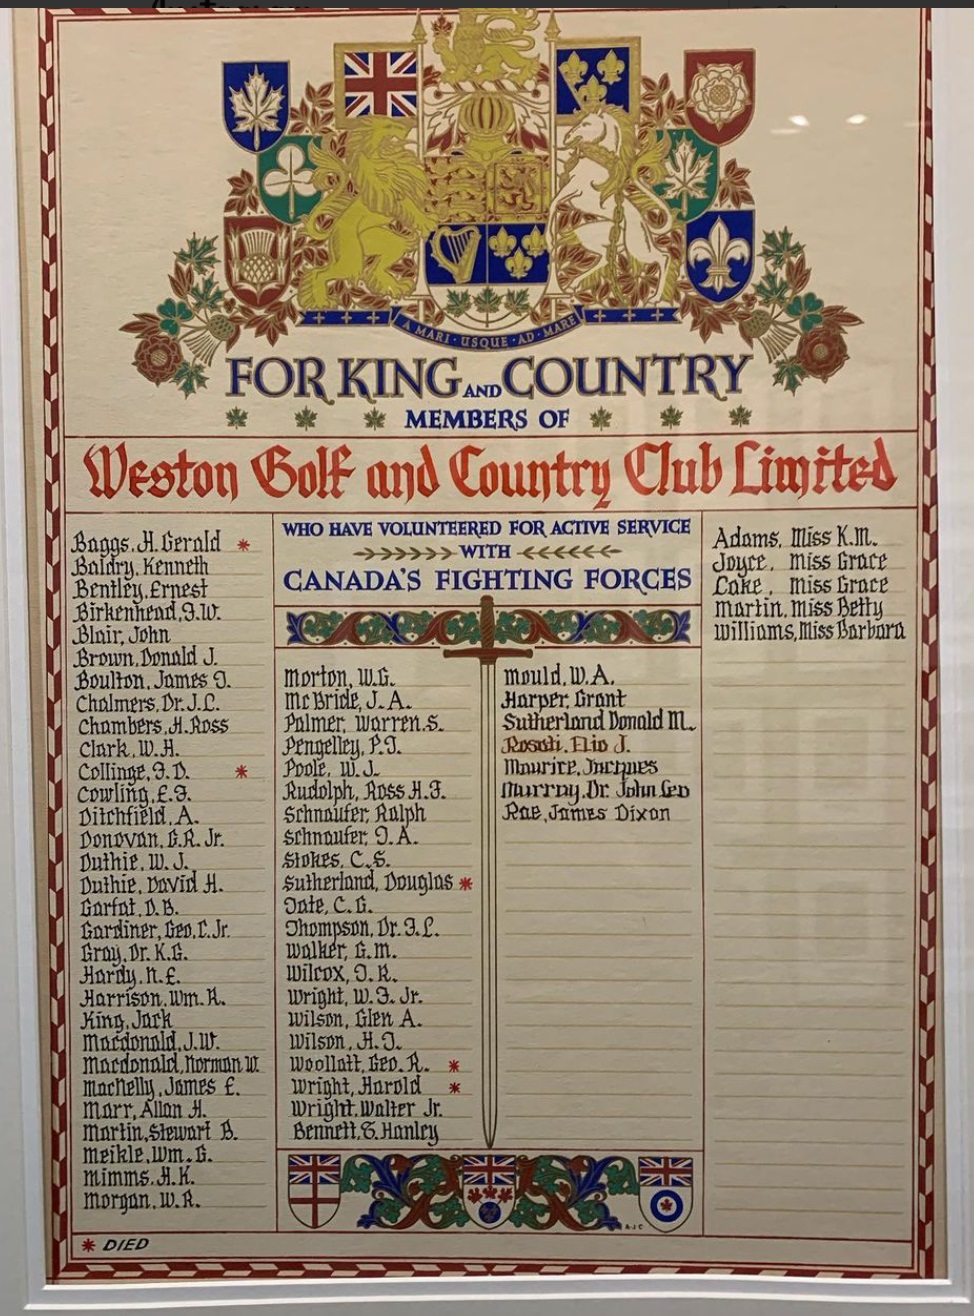 A MARI · USQUE · AD · MARE
FOR KING AND COUNTRY
MEMBERS OF
Weston Golf and Country Club Limited
WHO HAVE VOLUNTEERED FOR ACTIVE SERVICE
WITH
CANADA'S FIGHTING FORCES
Baggs, H. Gerald *
Baldry, Kenneth
Bentley, Ernest
Birkenhead, J.W.
Blair, John
Brown, Donald J.
Boulton, James T.
Chalmers, Dr. J.C.
Chambers, H. Ross
Clark, W.H.
Collinge, J.D. *
Cowling, E.J.
Ditchfield, A.
Donovan, G.R. Jr.
Duthie, W.J.
Duthie, David H.
Garfat, D.B.
Gardiner, Geo. C. Jr.
Gray, Dr. K.G.
Hardy, N.E.
Harrison, Wm. R.
King, Jack
Macdonald, J.W.
Macdonald, Norman W.
MacNelly, James E.
Marr, Allan H.
Martin, Stewart B.
Meikle, Wm. G.
Mimms, H.K.
Morgan, W.R.
Morton, W.G.
McBride, J.A.
Palmer, Warren S.
Pengelley, P.T.
Poole, W.J.
Rudolph, Ross H.J.
Schnaufer, Ralph
Schnaufer, T.A.
Stokes, C.S.
Sutherland, Douglas *
Tate, C.G.
Thompson, Dr. J.L.
Walker, G.M.
Wilcox, T.R.
Wright, W.J. Jr.
Wilson, Glen A.
Wilson, H.T.
Woollatt, Geo. R. *
Wright, Harold *
Wright, Walter Jr.
Bennett, S. Hanley
Mould, W.A.
Harper, Grant
Sutherland Donald M.
Elio J.
Maurice, Jacques
Murray, Dr. John Leo
Rae, James Dixon
Adams, Miss K.M.
Joyce, Miss Grace
Lake, Miss Grace
Martin, Miss Betty
Williams, Miss Barbara
A.J.C
* DIED